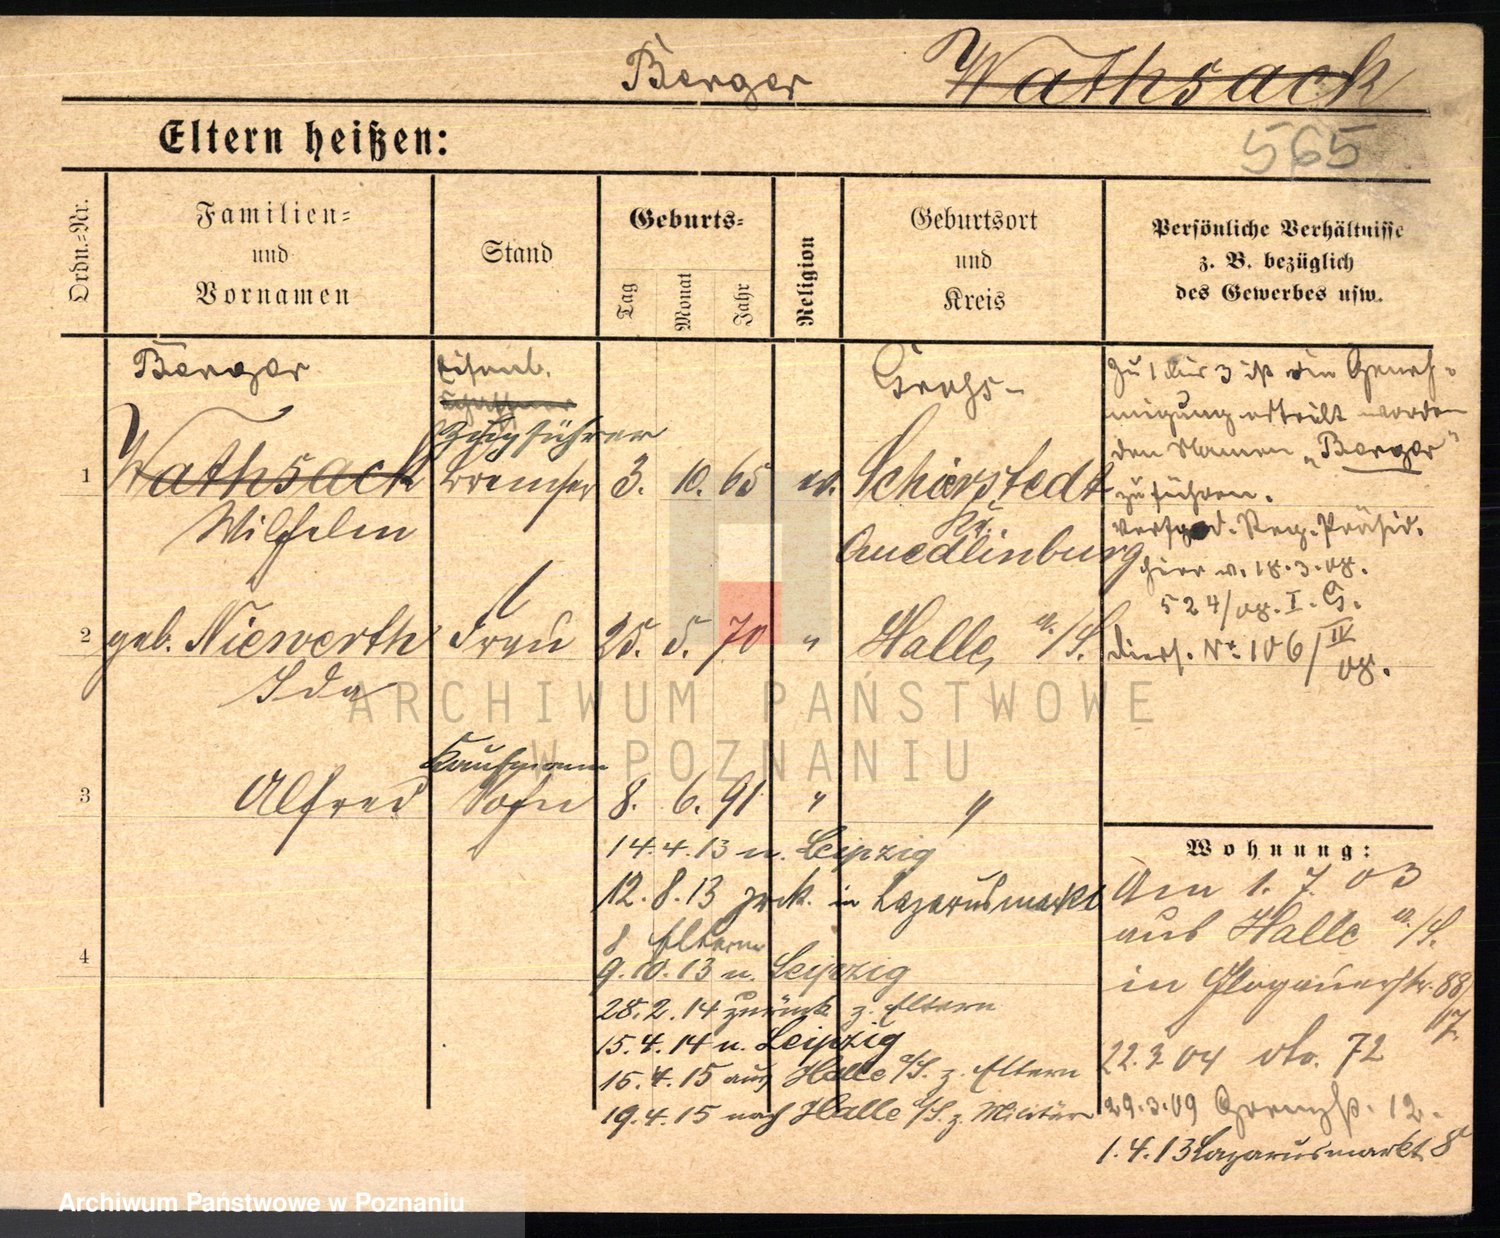 Berger Wathsack
Eltern heißen:
565
Ordn.=Nr.
Familien=
und
Vornamen
Stand
Geburts=
Tag
Monat
Jahr
Religion
Geburtsort
und
Kreis
Persönliche Verhältnisse
z. B. bezüglich
des Gewerbes usw.
Berger
Eisenb.
Zugführer
1 Wathsack Bremser 3. 10. 65 ev. Schierstedt
Wilhelm
Kr.
Quedlinburg
2 geb. Niewerth Frau 25. 5. 70 " Halle a/S.
Ida
Kaufmann
3 Alfred Sohn 8. 6. 91 " "
14.4.13 n. Leipzig
12.8.13 zrck. in Lazarusmarkt
8 Eltern
4
9.10.13 n. Leipzig
28.2.14 zurück z. Eltern
15.4.14 n. Leipzig
15.4.15 aus Halle a/S. z. Eltern
19.4.15 nach Halle a/S. z. Militär
Zu 1 bis 3 ist die Geneh=
migung erteilt worden
den Namen „Berger"
zu führen.
Verfgd. Reg. Präsid.
hier v. 18.3.08.
524/08. I. G.
diess. No. 106/IV
08.
Wohnung:
Am 1. 7. 03
aus Halle a/S.
in Glogauerstr. 88/
17.
22.3.04 dto. 72
29.3.09 Grenzstr. 12.
1.4.13 Lazarusmarkt 8
ARCHIWUM PAŃSTWOWE
W POZNANIU
Archiwum Państwowe w Poznaniu